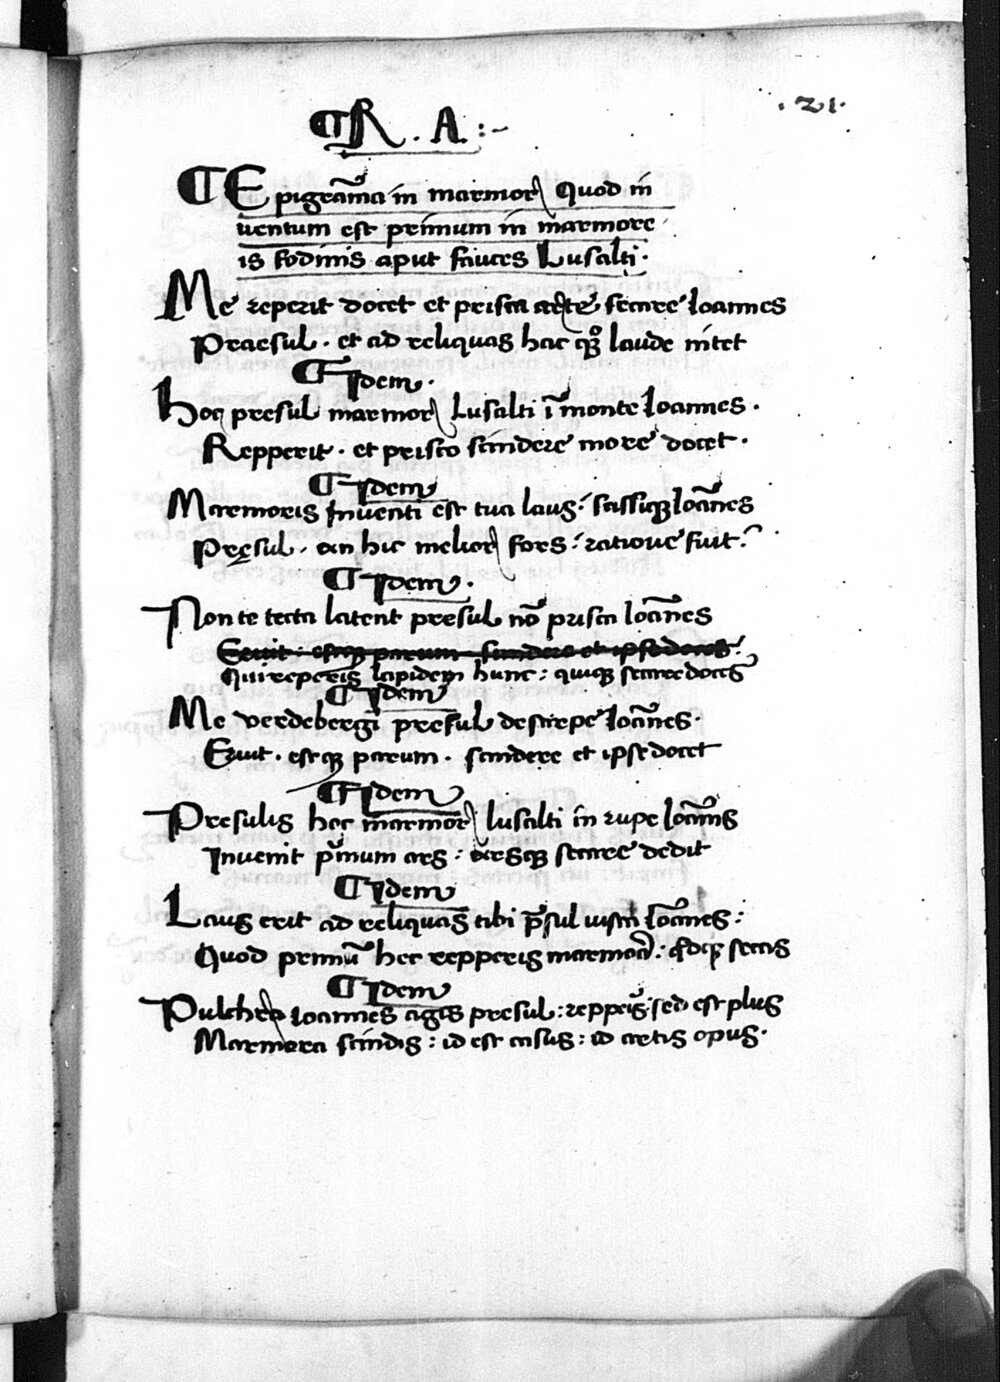 .21.
¶ R . A :-
¶ Epigrāma in marmor Quod in
uentum est primum in marmore
is fodinis aput fauces Lusalti.
Me reperit docet et prisca arte secare Ioannes
Praesul . et ad reliquas hac quoque laude nitet
¶ Idem .
Hoc presul marmor Lusalti ī monte Ioannes .
Repperit . et prisco scindere more docet .
¶ Idem
Marmoris Inuenti est tua laus : scissique Ioānes
Pręsul . an hic melior fors : ratione fuit :
¶ Idem .
Non te tecta latent presul nō prisca Ioānes
Eruit : estque parum scindere et ipse docet :
Qui reperis lapidem hunc : quique secare doces
¶ Idem
Me verdebergi presul de stirpe Ioānes .
Eruit . estque parum . scindere et ipse docet
¶ Idem
Presulis hec marmor lusalti in rupe Ioānis
Inuenit primum ars : arsque secare dedit
¶ Idem
Laus erit ad reliquas tibi p̄sul iusta Ioānes :
Quod primū hec repperis marmora : quodque secas
¶ Idem
Pulchra Ioannes agis presul : repperis : sed est plus
Marmora scindis : id est casus : id artis opus .